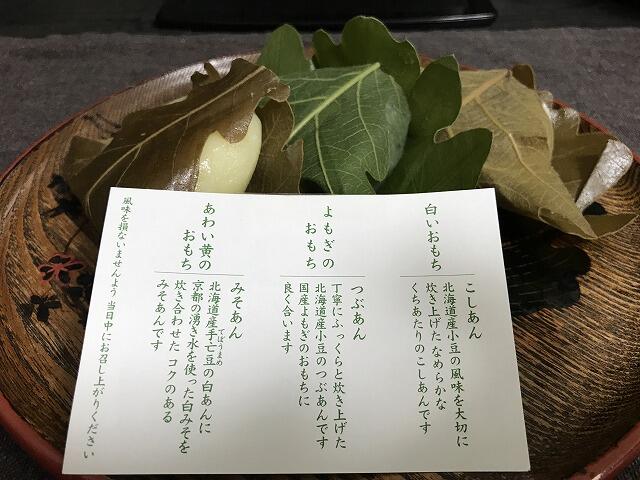 白いおもち
こしあん
北海道産小豆の風味を大切に
炊き上げたなめらかな
くちあたりのこしあんです
よもぎの
おもち
つぶあん
丁寧にふっくらと炊き上げた
北海道産小豆のつぶあんです
国産よもぎのおもちに
良く合います
あわい黄の
おもち
みそあん
北海道産手亡豆の白あんに
てぼうまめ
京都の湧き水を使った白みそを
炊き合わせた コクのある
みそあんです
風味を損ないませんよう 当日中にお召し上がりください